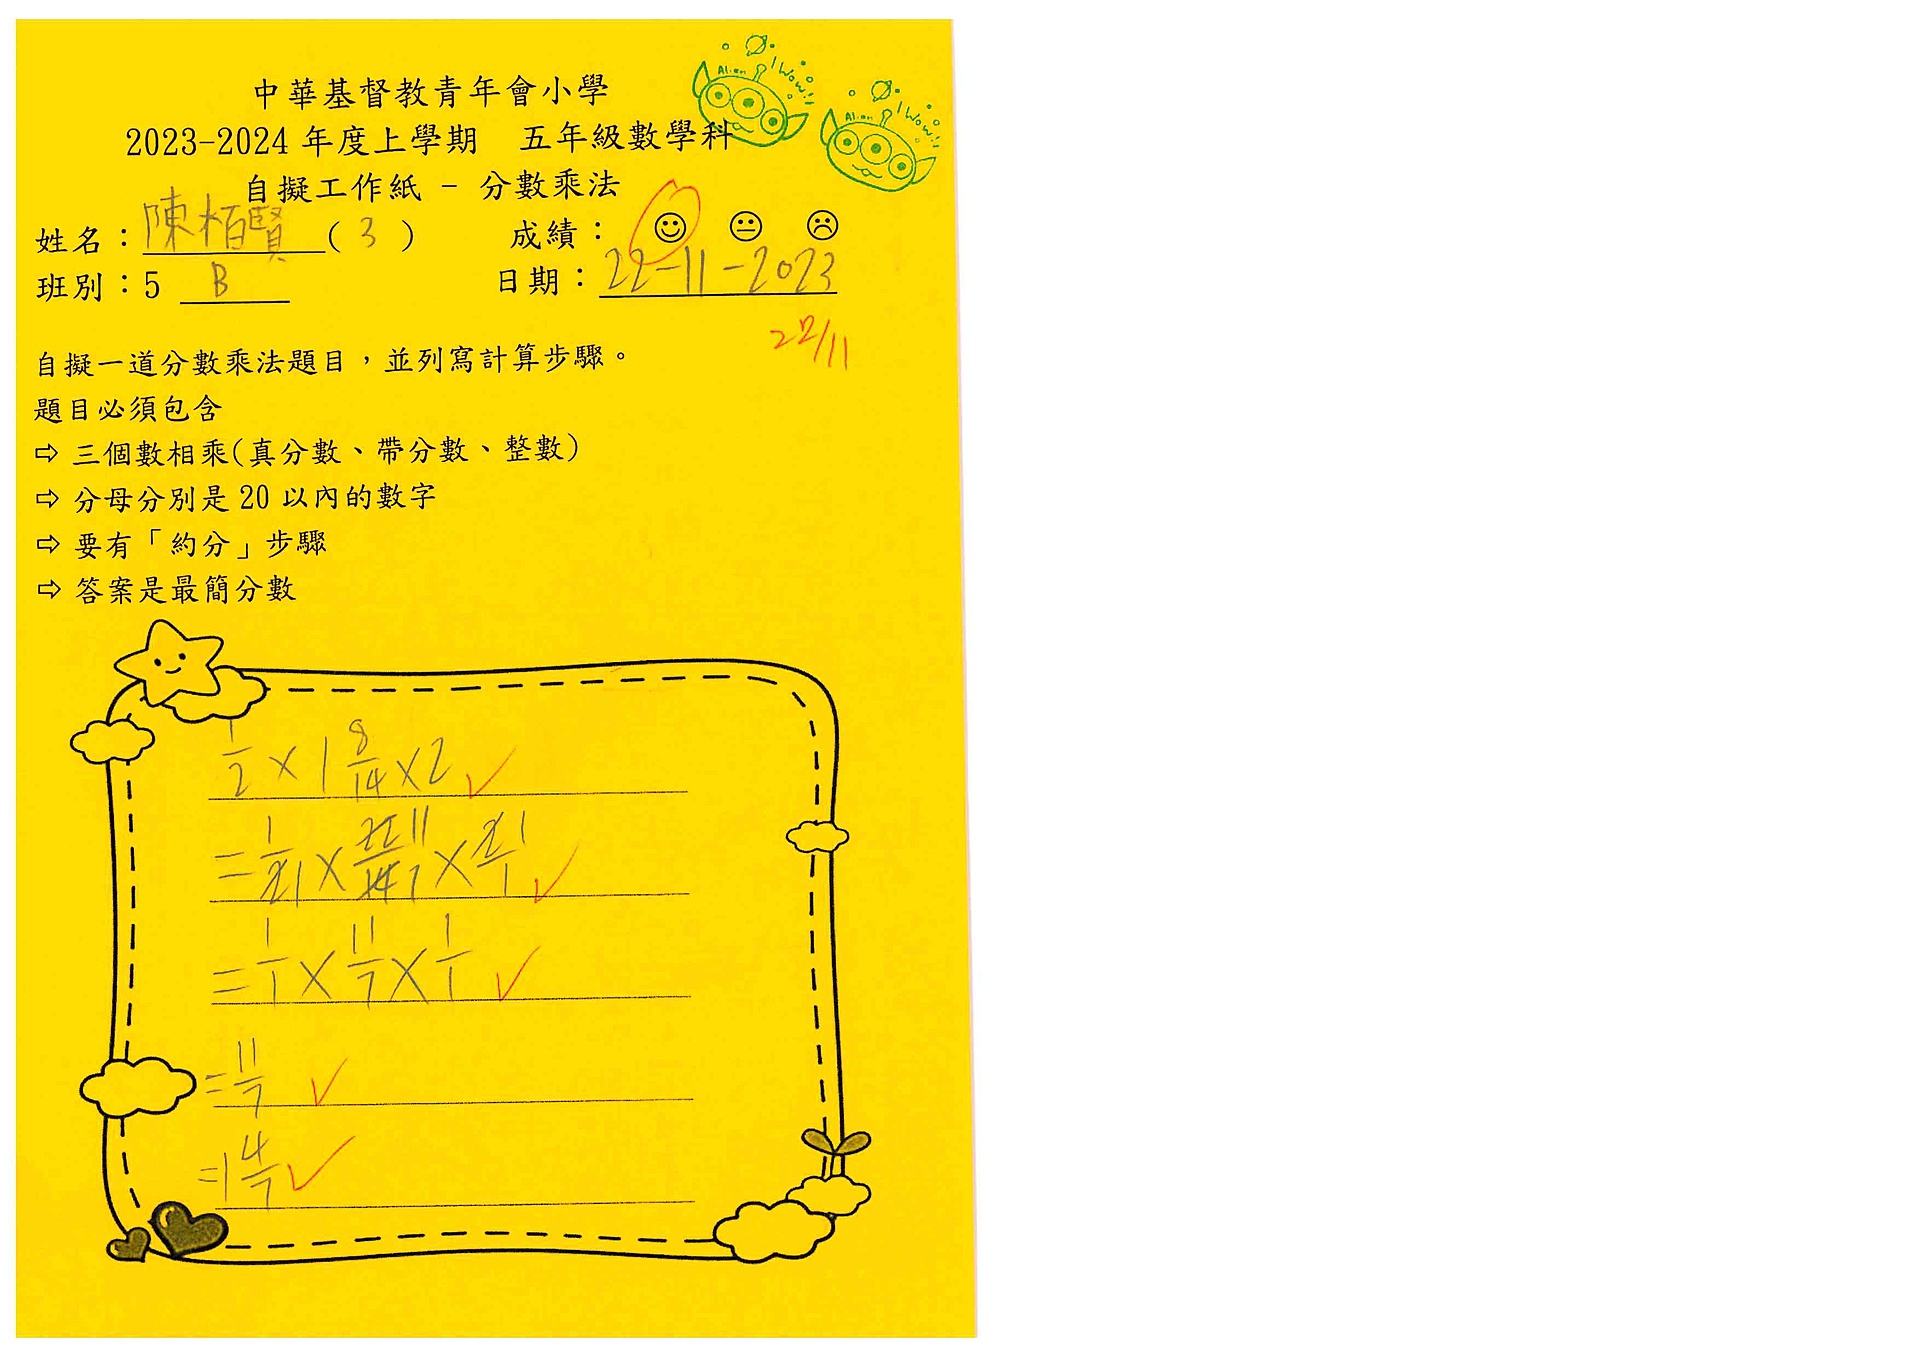 中華基督教青年會小學
2023-2024 年度上學期 五年級數學科
自擬工作紙 - 分數乘法
姓名：陳栢賢(3) 成績：☺ 😐 ☹
班別：5 B 日期：22-11-2023
22/11
自擬一道分數乘法題目，並列寫計算步驟。
題目必須包含
⇨ 三個數相乘(真分數、帶分數、整數)
⇨ 分母分別是 20 以內的數字
⇨ 要有「約分」步驟
⇨ 答案是最簡分數
Alien I Wow!!
Alien I Wow!!
1/2 × 1 8/14 × 2 ✓
= 1/2 1 × 22 11/14 7 × 2 1/1 ✓
= 1/1 × 11/7 × 1/1 ✓
= 11/7 ✓
= 1 4/7 ✓